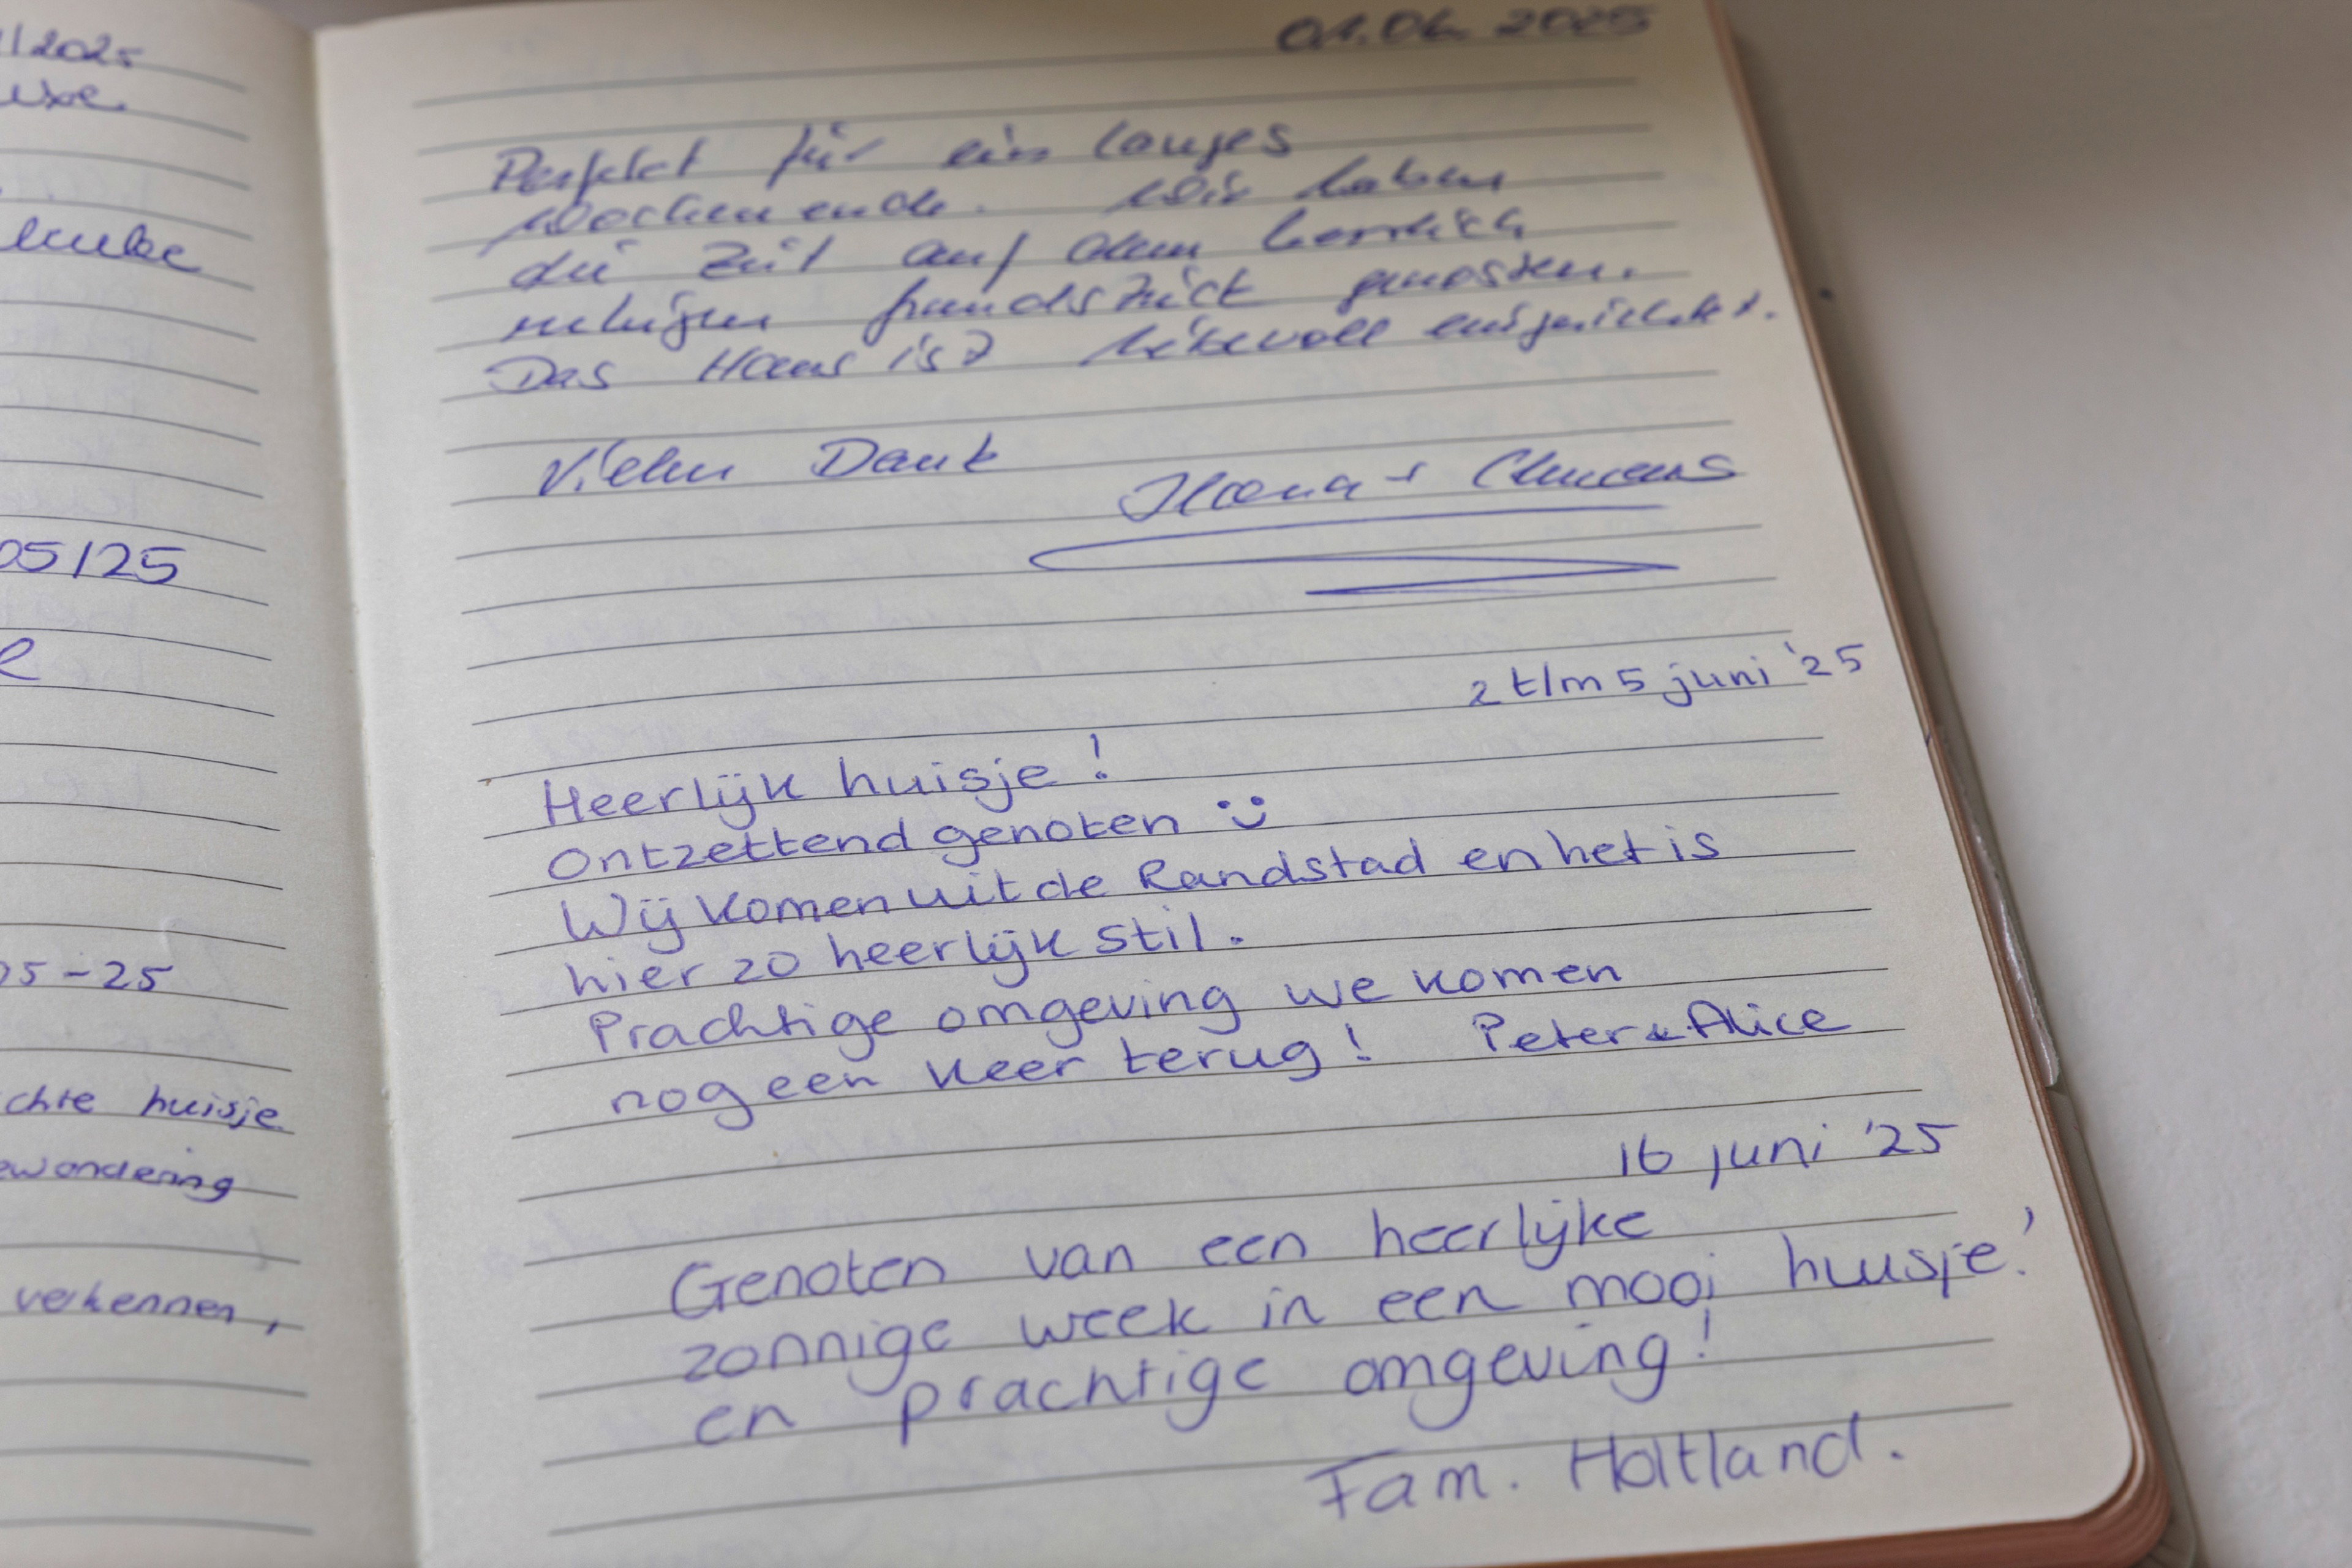 /2025
lenke
05/25
05-25
chte huisje
ewondering
verkennen,
01.06.2025
Perfekt für ein langes
Wochenende. Wir haben
die Zeit auf dem herrlich
ruhigen Grundstück genossen.
Das Haus ist liebevoll eingerichtet.
Vielen Dank
Ilona + Clemens
2 t/m 5 juni '25
Heerlijk huisje!
Ontzettend genoten :)
Wij komen uit de Randstad en het is
hier zo heerlijk stil.
Prachtige omgeving we komen
nog een keer terug! Peter & Alice
16 juni '25
Genoten van een heerlijke
zonnige week in een mooi huisje!
en prachtige omgeving!
Fam. Holtland.